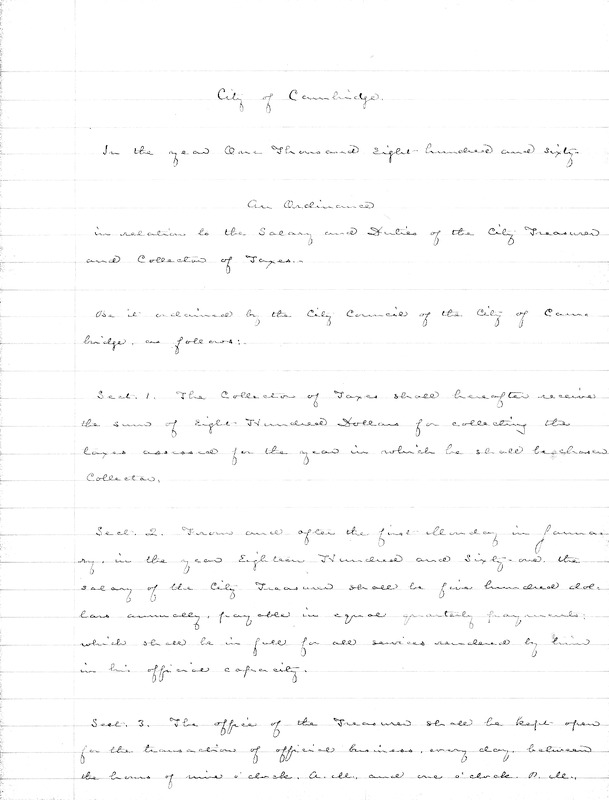 City of Cambridge.
In the year One Thousand Eight hundred and Sixty.
An Ordinance
in relation to the Salary and Duties of the City Treasurer
and Collector of Taxes.
Be it ordained by the City Council of the City of Cam
bridge, as follows:
Sect. 1. The Collector of Taxes shall hereafter receive
the sum of Eight Hundred Dollars for collecting the
taxes assessed for the year in which he shall be chosen
Collector.
Sect. 2. From and after the first Monday in Janua
ry, in the year Eighteen Hundred and Sixty-one, the
salary of the City Treasurer shall be five hundred dol
lars annually, payable in equal quarterly payments;
which shall be in full for all services rendered by him
in his official capacity.
Sect. 3. The office of the Treasurer shall be kept open
for the transaction of official business, every day, between
the hours of nine o'clock, A.M., and one o'clock P.M.,